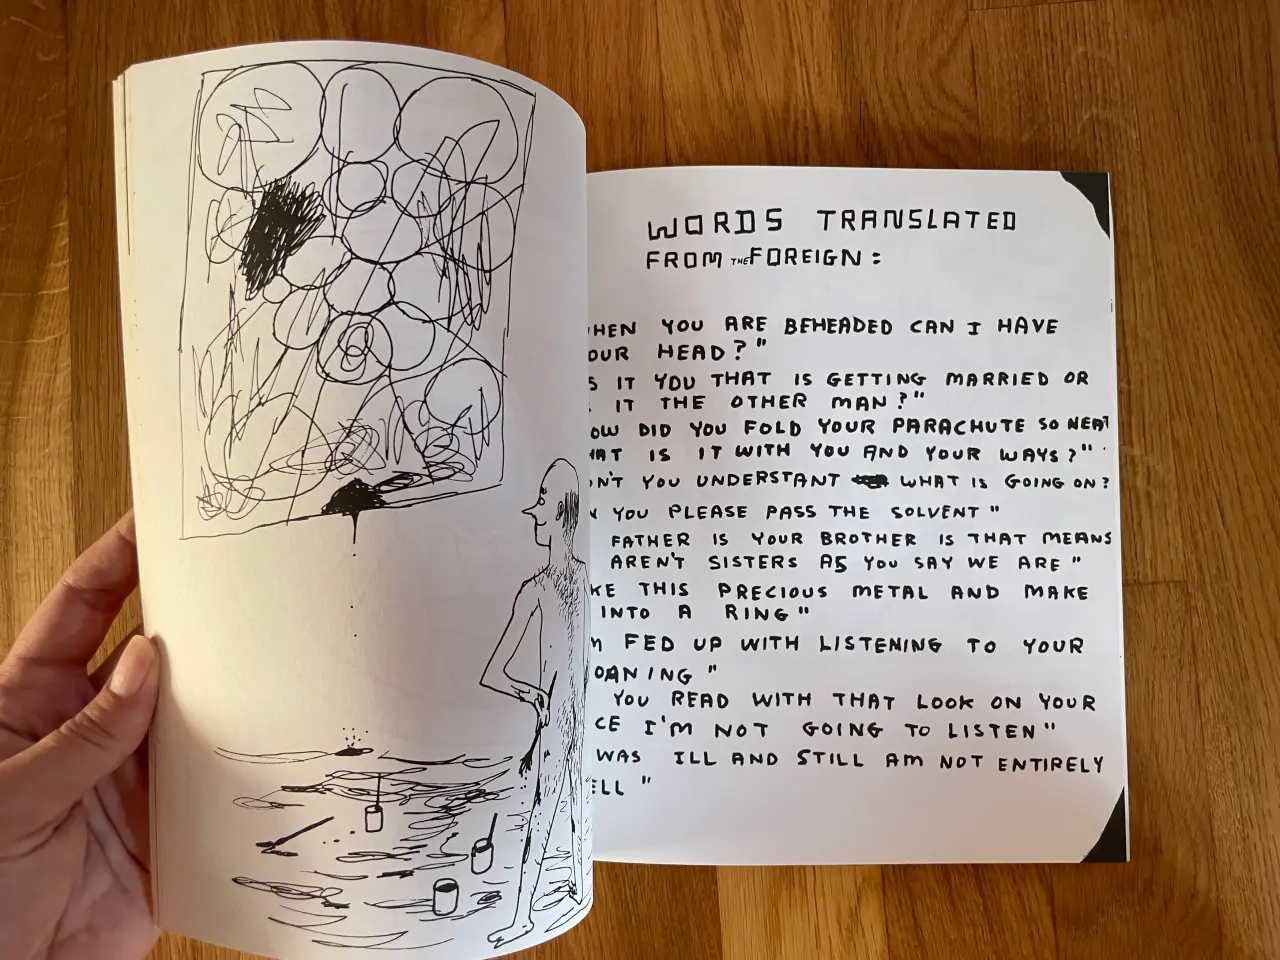 WORDS TRANSLATED
FROM THE FOREIGN:
HEN YOU ARE BEHEADED CAN I HAVE
OUR HEAD?"
S IT YOU THAT IS GETTING MARRIED OR
IT THE OTHER MAN?"
OW DID YOU FOLD YOUR PARACHUTE SO NEAT
HAT IS IT WITH YOU AND YOUR WAYS?"
N'T YOU UNDERSTANT WHAT IS GOING ON?
N YOU PLEASE PASS THE SOLVENT"
FATHER IS YOUR BROTHER IS THAT MEANS
AREN'T SISTERS AS YOU SAY WE ARE"
KE THIS PRECIOUS METAL AND MAKE
INTO A RING"
M FED UP WITH LISTENING TO YOUR
OANING"
YOU READ WITH THAT LOOK ON YOUR
CE I'M NOT GOING TO LISTEN"
WAS ILL AND STILL AM NOT ENTIRELY
ELL"